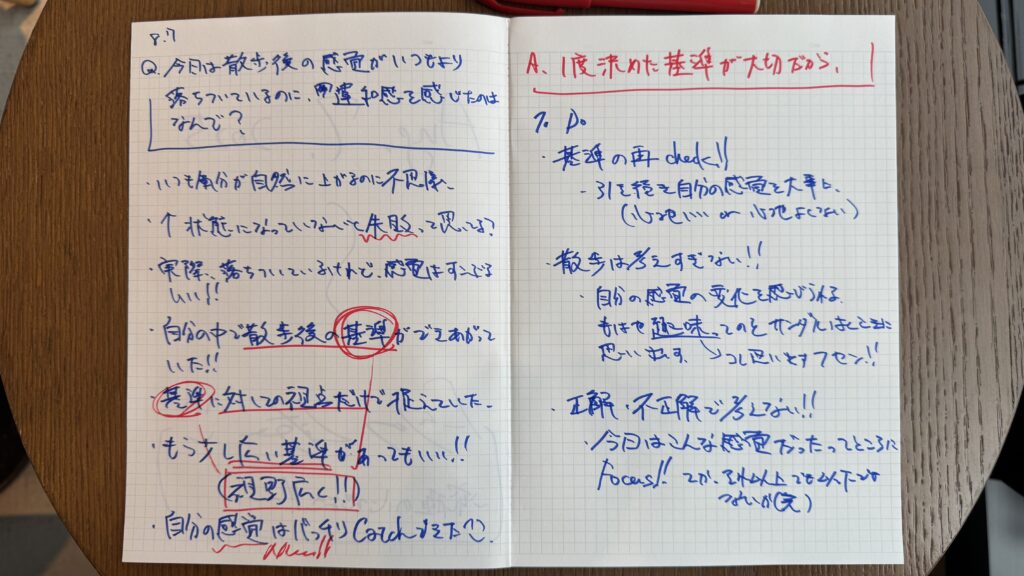 8.7
Q. 今日は散歩後の感覚がいつもより
落ちついているのに、違和感を感じたのは
なんで?
・いつも気分が自然に上がるのに不思議、
・↑状態になっていないと失敗って思ってる?
・実際、落ちついているけれど、感覚はすこぶる
いい!!
・自分の中で散歩後の基準ができあがって
いた!!
・基準に対しての視点だけで捉えていた、
・もう少し広い基準があってもいい!!
(視野広く!!)
・自分の感覚はバッチリCatchできた
A. 1度決めた基準が大切だから、
7. Do
・基準の再check!!
・引き続き自分の感覚を大事に、
(心地いい or 心地よくない)
・散歩は考えすぎない!!
・自分の感覚の変化を感じられる
もはや趣味ってのをサンダルはくときに
思い出す
→コレ思い出すフセン!!
・正解・不正解で考えない!!
・今日はこんな感覚だったってところに
Focus!! てか、それ以上でも以下でも
ないが(笑)